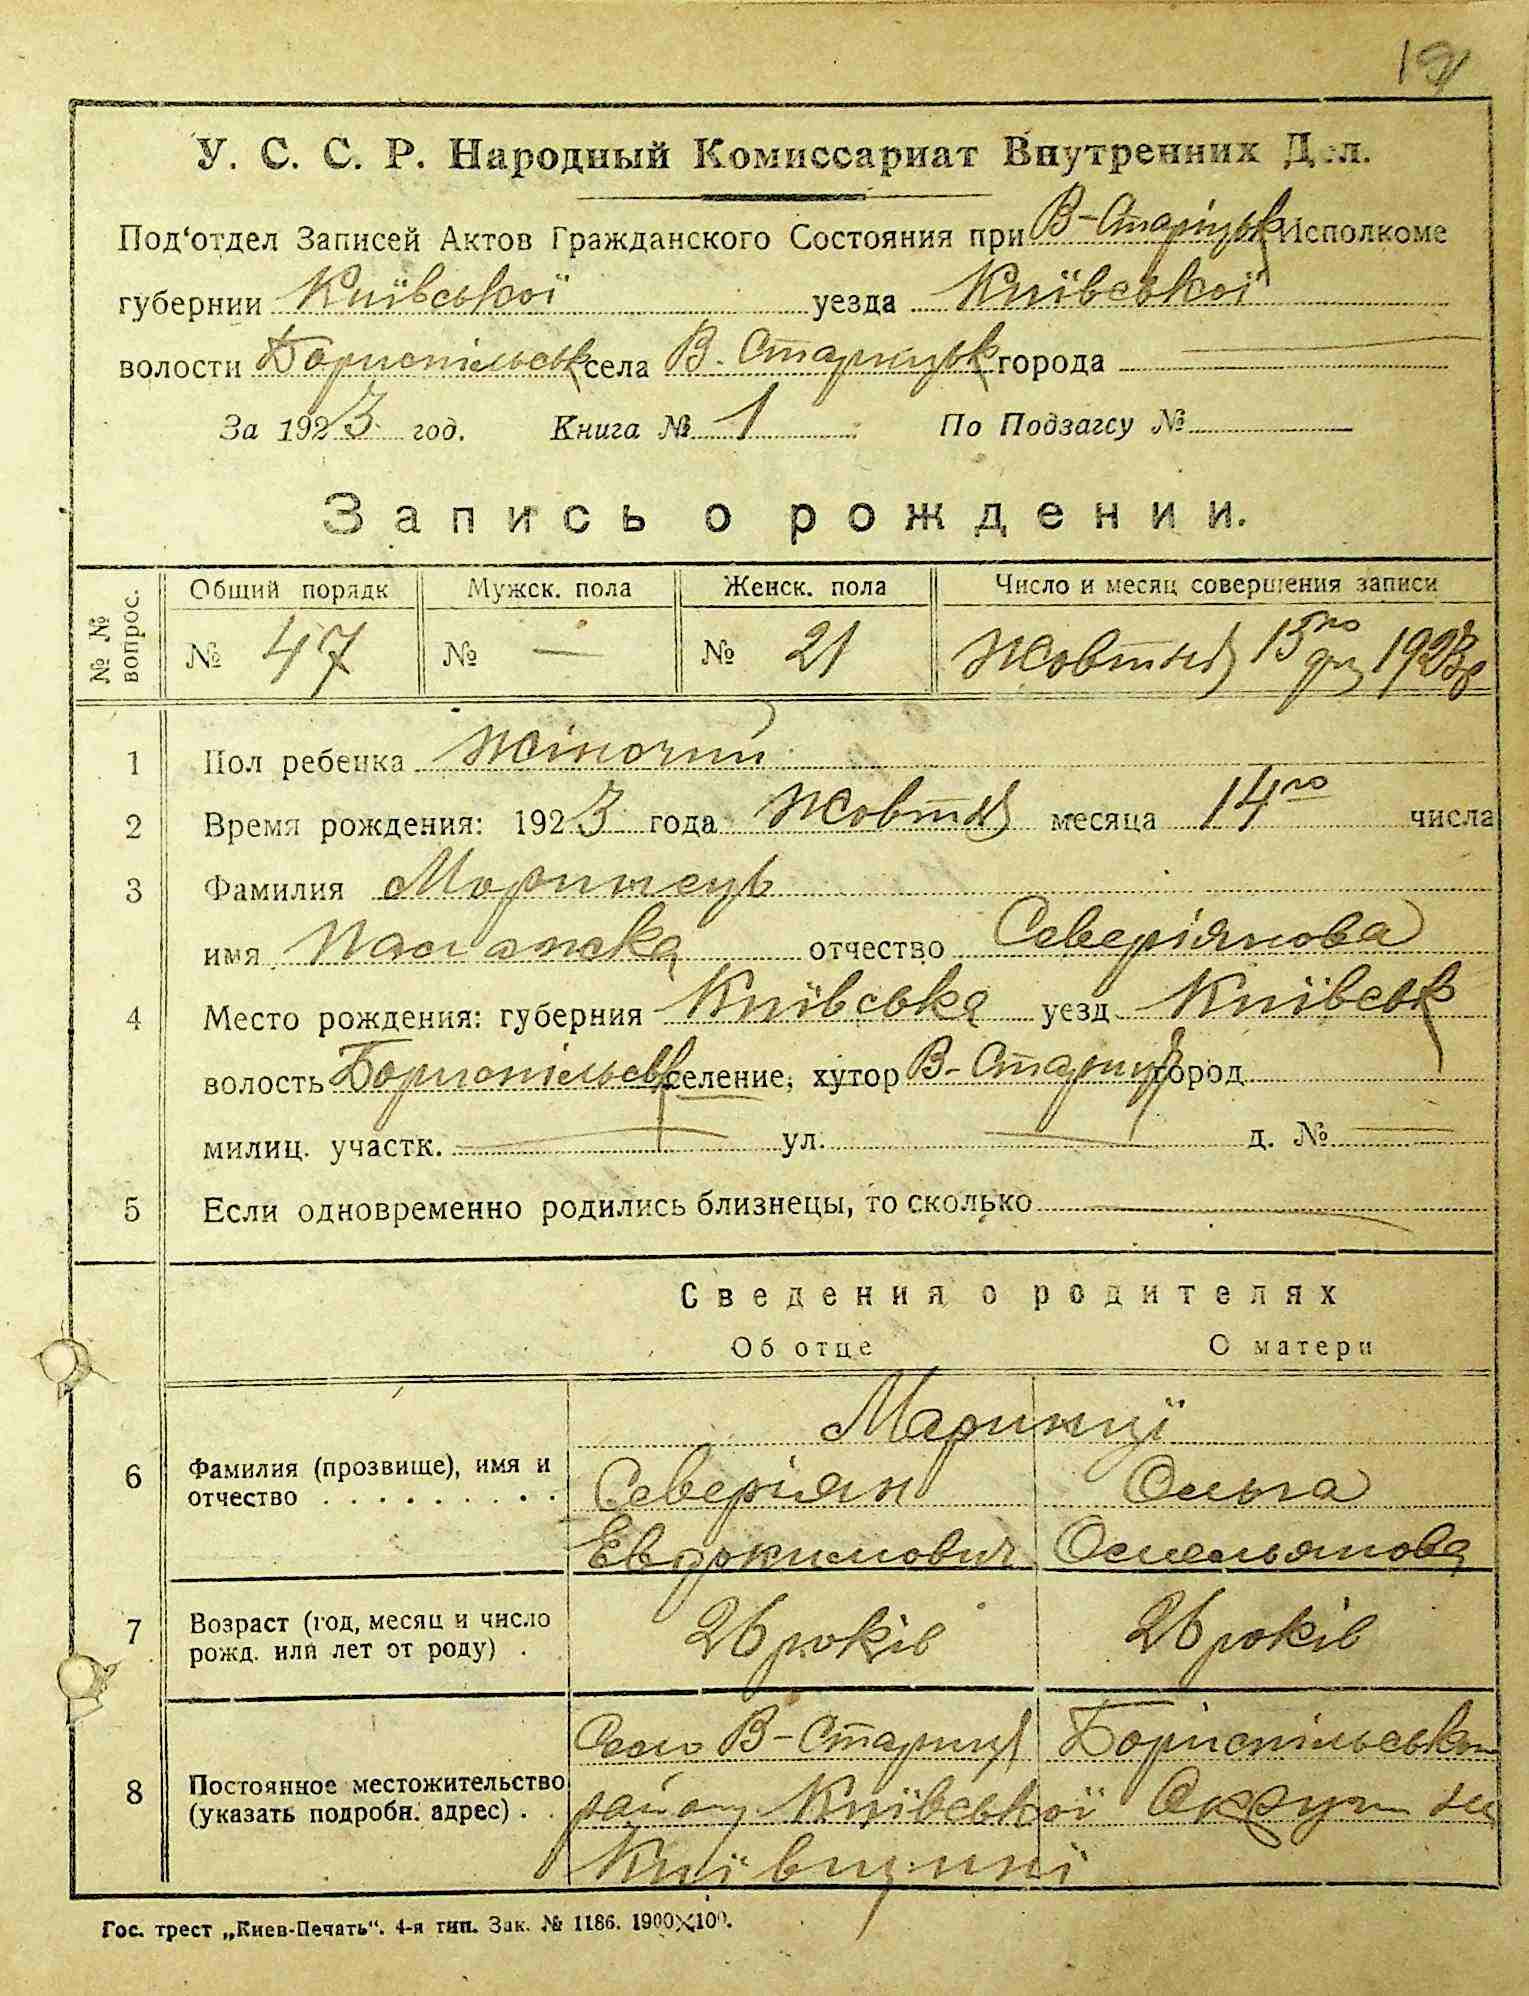 19
У. С. С. Р. Народный Комиссариат Внутренних Дел.
Под'отдел Записей Актов Гражданского Состояния при В-Старицьк Исполкоме
губернии Київської уезда Київської
волости Бориспільськ села В. Старицьк города —
За 1923 год. Книга № 1 По Подзагсу №
Запись о рождении.
№ № вопрос.
Общий порядк Мужск. пола Женск. пола Число и месяц совершения записи
№ 47 № — № 21 Жовтня 15го дня 1923 р
1 Пол ребенка Жіночий
2 Время рождения: 1923 года Жовтня месяца 14го числа
3 Фамилия Маринець
имя отчество Северіянова
4 Место рождения: губерния Київська уезд Київськ
волость Бориспільськ селение, хутор В-Стариця город
милиц. участк. — ул. — д. № —
5 Если одновременно родились близнецы, то сколько —
Сведения о родителях
Об отце О матери
Маринці
6 Фамилия (прозвище), имя и отчество Северіян Ольга
Евдокимович Омельянова
7 Возраст (год, месяц и число рожд. или лет от роду) 26 років 26 років
8 Постоянное местожительство (указать подробн. адрес) Село В-Стариця Бориспільського
району Київської Округи на
Київщині
Гос. трест „Киев-Печать". 4-я тип. Зак. № 1186. 1900×100.